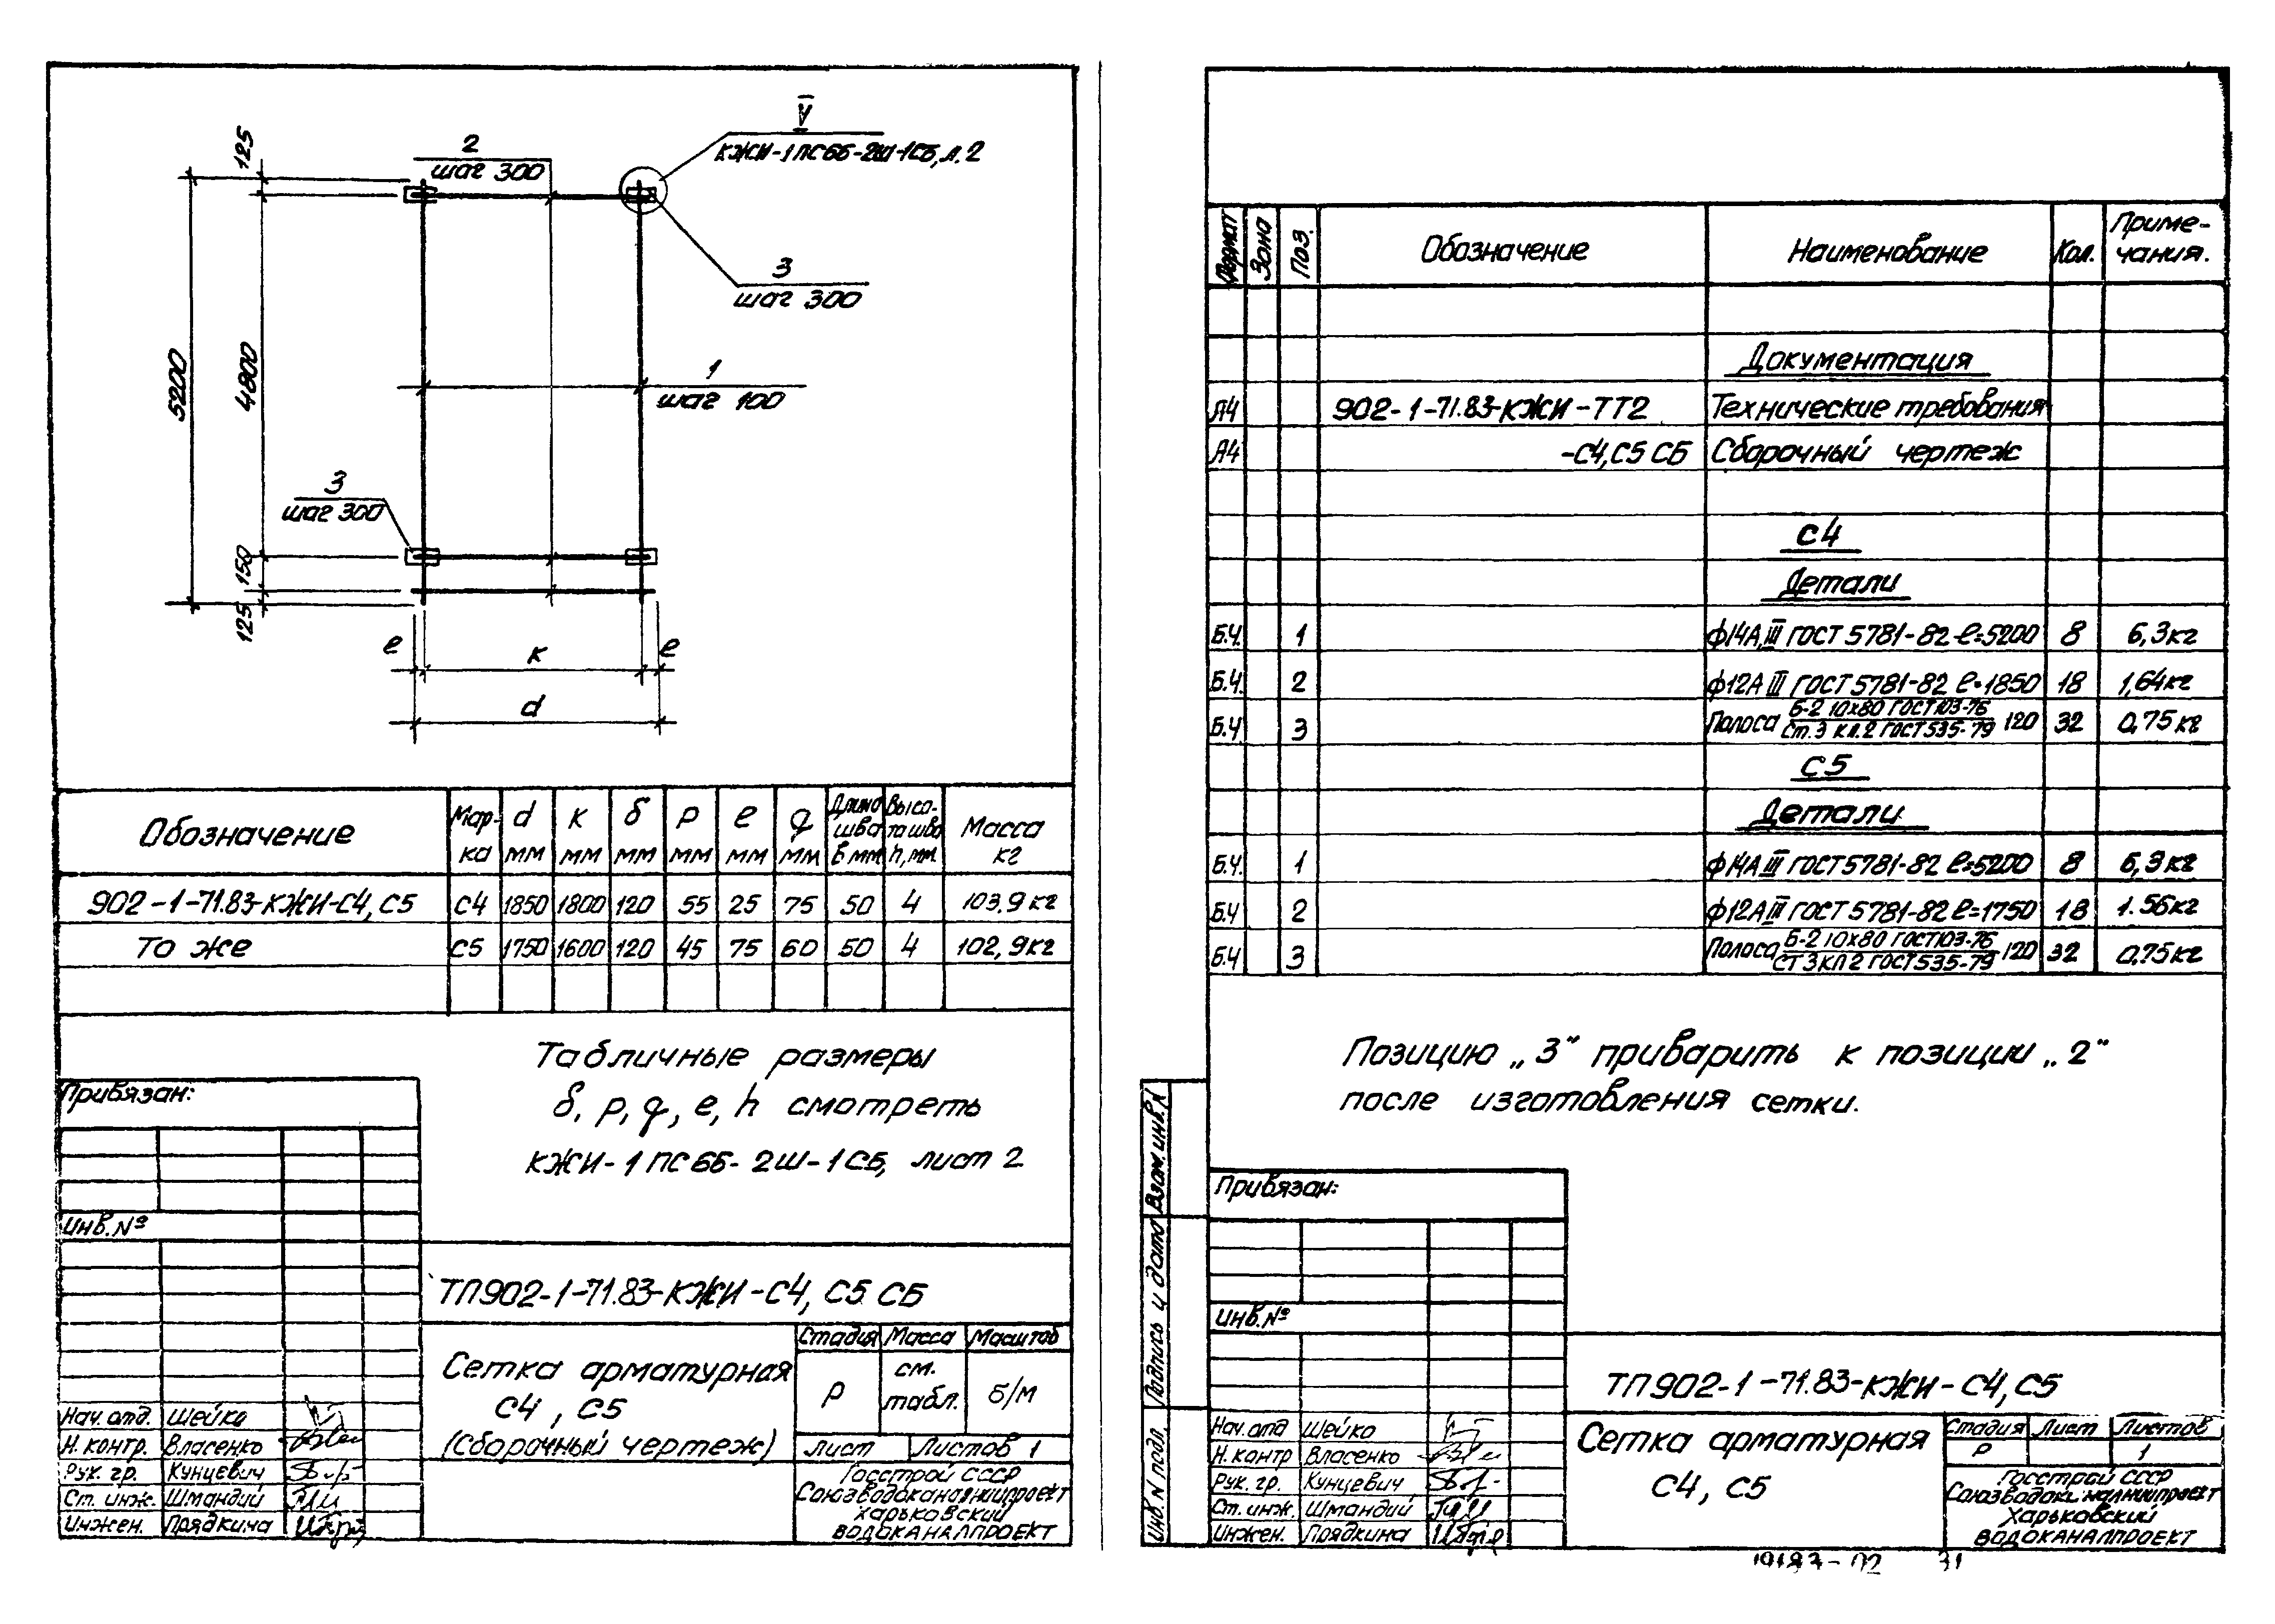 V
КЖИ-1ПС6Б-2Ш-1СБ, л.2
2
шаг 300
125
3
шаг 300
5200
4800
1
шаг 100
3
шаг 300
150
125
е
к
е
d
Обозначение Мар-ка d мм к мм δ мм р мм е мм q мм Длина шва в мм Высота шва h, мм Масса кг
902-1-71.83-КЖИ-С4, С5 С4 1850 1800 120 55 25 75 50 4 103,9 кг
То же С5 1750 1600 120 45 75 60 50 4 102,9кг
Табличные размеры
δ, р, q, е, h смотреть
КЖИ-1ПС6Б-2Ш-1СБ, лист 2
Привязан:
Инв.№
ТП902-1-71.83-КЖИ-С4, С5 СБ
Сетка арматурная
С4, С5
(Сборочный чертеж)
Стадия Масса Масштаб
Р см. табл. б/м
Лист Листов 1
Госстрой СССР
Союзводоканалниипроект
Харьковский
ВОДОКАНАЛПРОЕКТ
Нач.отд. Шейко
Н.контр. Власенко
Рук. гр. Кунцевич
Ст. инж. Шмандий
Инжен. Прядкина
Формат Зона Поз. Обозначение Наименование Кол. Приме-чания.
Документация
А4 902-1-71.83-КЖИ-ТТ2 Технические требования
А4 -С4, С5 СБ Сборочный чертеж
С4
Детали
Б.Ч. 1 ф14АIII ГОСТ 5781-82 ℓ=5200 8 6,3кг
Б.Ч. 2 ф12АIII ГОСТ 5781-82 ℓ=1850 18 1,64кг
Б.Ч 3 Полоса Б-2 10х80 ГОСТ103-76 120 32 0,75кг
Ст.3 КП.2 ГОСТ535-79
С5
Детали
Б.Ч. 1 ф14АIII ГОСТ 5781-82 ℓ=5200 8 6,3 кг
Б.Ч 2 ф12АIII ГОСТ 5781-82 ℓ=1750 18 1.56кг
Б.Ч 3 Полоса Б-2 10х80 ГОСТ103-76 120 32 0,75кг
СТ 3 КП 2 ГОСТ535-79
Позицию „3" приварить к позиции „2"
после изготовления сетки.
Взам.инв.N
Подпись и дата
Инв.N подл.
Привязан:
Инв.№
ТП902-1-71.83-КЖИ-С4, С5
Сетка арматурная
С4, С5
Стадия Лист Листов
Р 1
Госстрой СССР
Союзводоканалниипроект
Харьковский
ВОДОКАНАЛПРОЕКТ
Нач.отд Шейко
Н.контр Власенко
Рук. гр. Кунцевич
Ст.инж. Шмандий
Инжен. Прядкина
19183-02 31